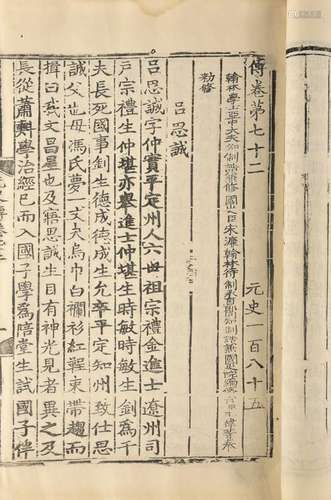 傳卷第七十二 元史一百八十五
翰林學士亞中大夫知制誥兼修國史臣宋濂翰林待制承直郎同知制誥兼國史院編修官臣王褘等奉
勑修
呂思誠
呂思誠字仲實平定州人六世祖宗禮金進士遼州司
戶宗禮生仲堪亦舉進士仲堪生時敏時敏生釗為千
夫長死國事釗生德成德成生允卒平定知州致仕思
誠父也母馮氏夢一丈夫烏巾白襴衫紅鞓束帶趨而
揖曰我文昌星也及寤思誠生目有神光見者異之及
長從蕭𣂏學治經已而入國子學為陪堂生試國子伴